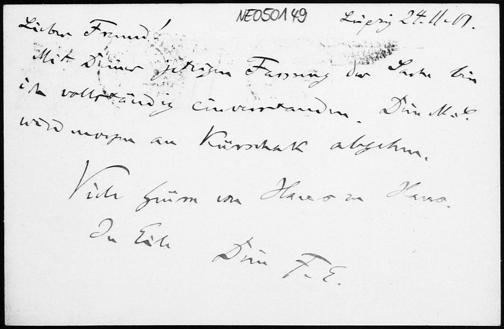 NE050149
Leipzig 24.11.01.
Lieber Freund!
Mit Deiner jetzigen Fassung der Sache bin
ich vollständig einverstanden. Dein M.S.
wird morgen an Kürschak abgehen.
Viele Grüsse von Haus zu Haus.
In Eile
Dein F. E.